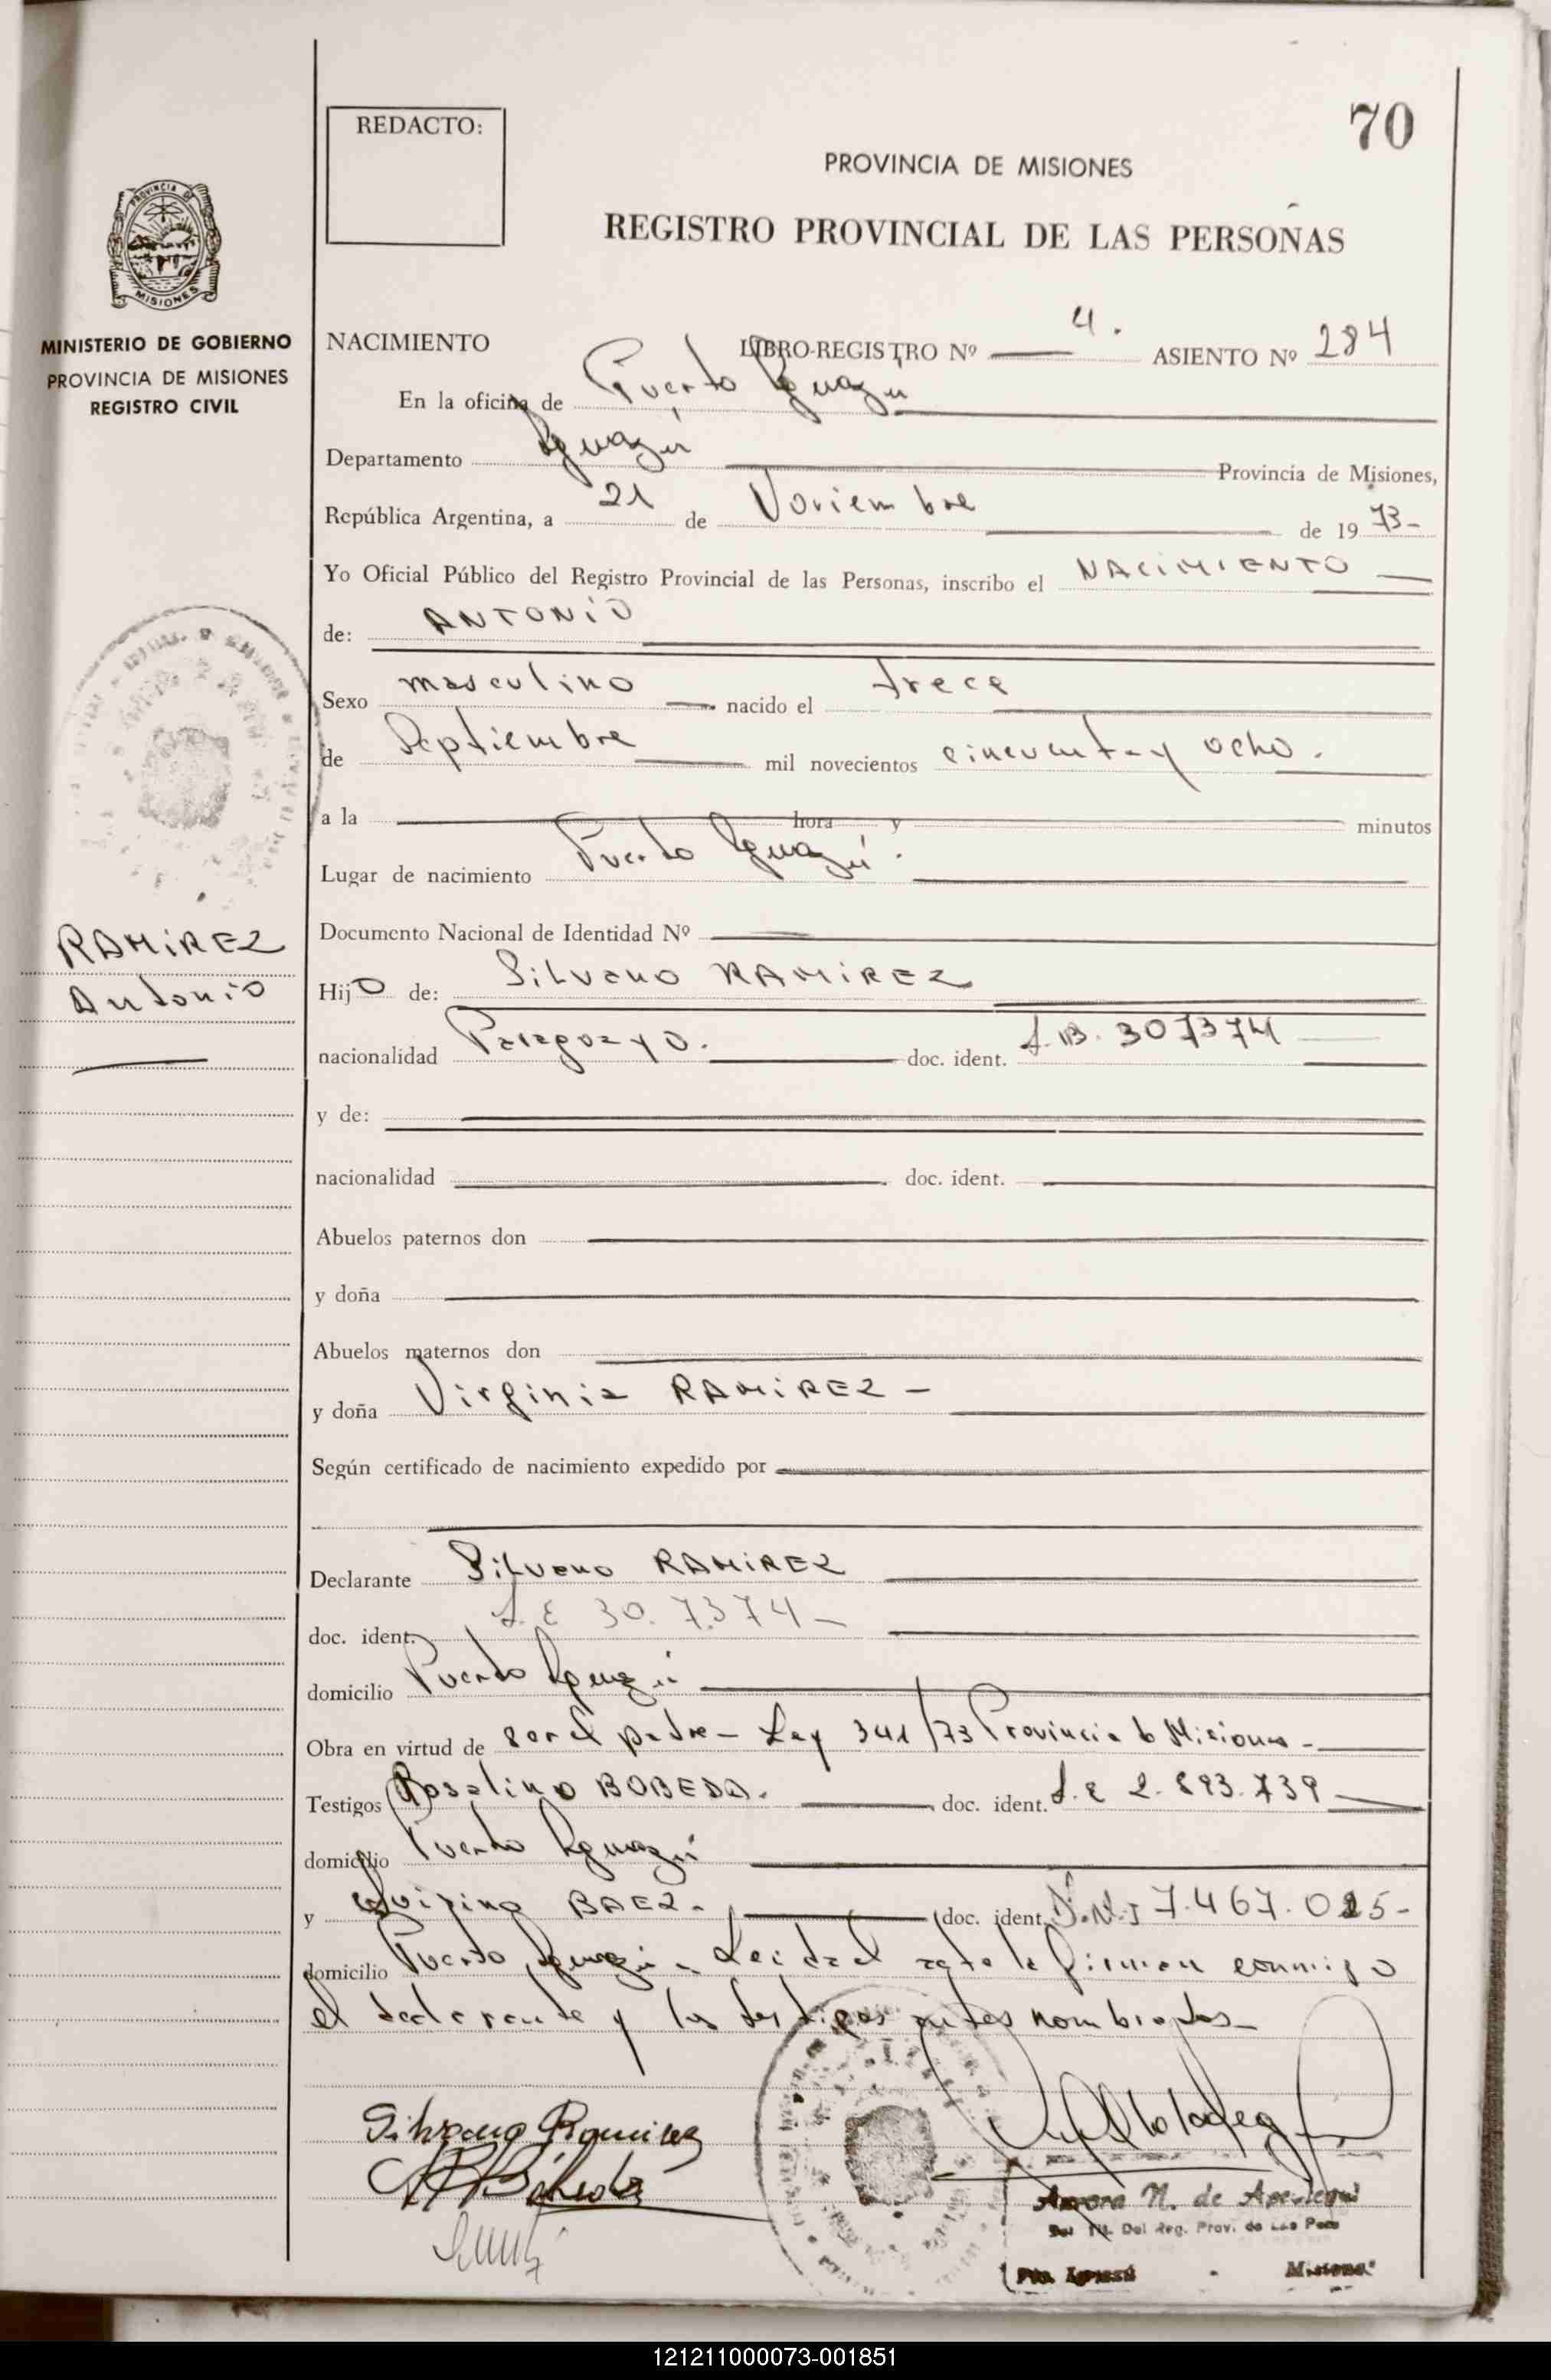 70
REDACTO:
PROVINCIA DE MISIONES
REGISTRO PROVINCIAL DE LAS PERSONAS
PROVINCIA DE
MISIONES
MINISTERIO DE GOBIERNO
PROVINCIA DE MISIONES
REGISTRO CIVIL
RAMIREZ
Antonio
NACIMIENTO LIBRO-REGISTRO Nº 4. ASIENTO Nº 284
En la oficina de Puerto Iguazú
Departamento Iguazú Provincia de Misiones,
República Argentina, a 21 de Noviembre de 1973-
Yo Oficial Público del Registro Provincial de las Personas, inscribo el NACIMIENTO
de: ANTONIO
Sexo masculino nacido el trece
de Septiembre mil novecientos cincuenta y ocho.
a la hora y minutos
Lugar de nacimiento Puerto Iguazú.
Documento Nacional de Identidad Nº
Hijo de: Silvano RAMIREZ
nacionalidad Paraguayo. doc. ident. 307374
y de:
nacionalidad doc. ident.
Abuelos paternos don
y doña
Abuelos maternos don
y doña Virginia RAMIREZ -
Según certificado de nacimiento expedido por
Declarante Silvano RAMIREZ
doc. ident. L.E 30.7.374-
domicilio Puerto Iguazú
Obra en virtud de ser el padre - Ley 341/73 Provincia de Misiones-
Testigos Rosalino BOBEDA. doc. ident. L.E 2.893.739
domicilio Puerto Iguazú
y BAEZ. doc. ident. D.N.I 7.467.025-
domicilio Puerto Iguazú - Leida el acta la firman conmigo
el declarante y los testigos antes nombrados-
Silvano Ramirez
Aurora N. de
Del Reg. Prov. de Las Pers
Pto. Iguazú - Misiones
121211000073-001851